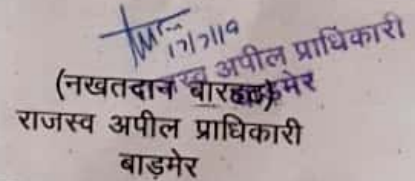 17/7/19
राजस्व अपील प्राधिकारी
बाड़मेर
(नखतदान बारहठ)
राजस्व अपील प्राधिकारी
बाड़मेर